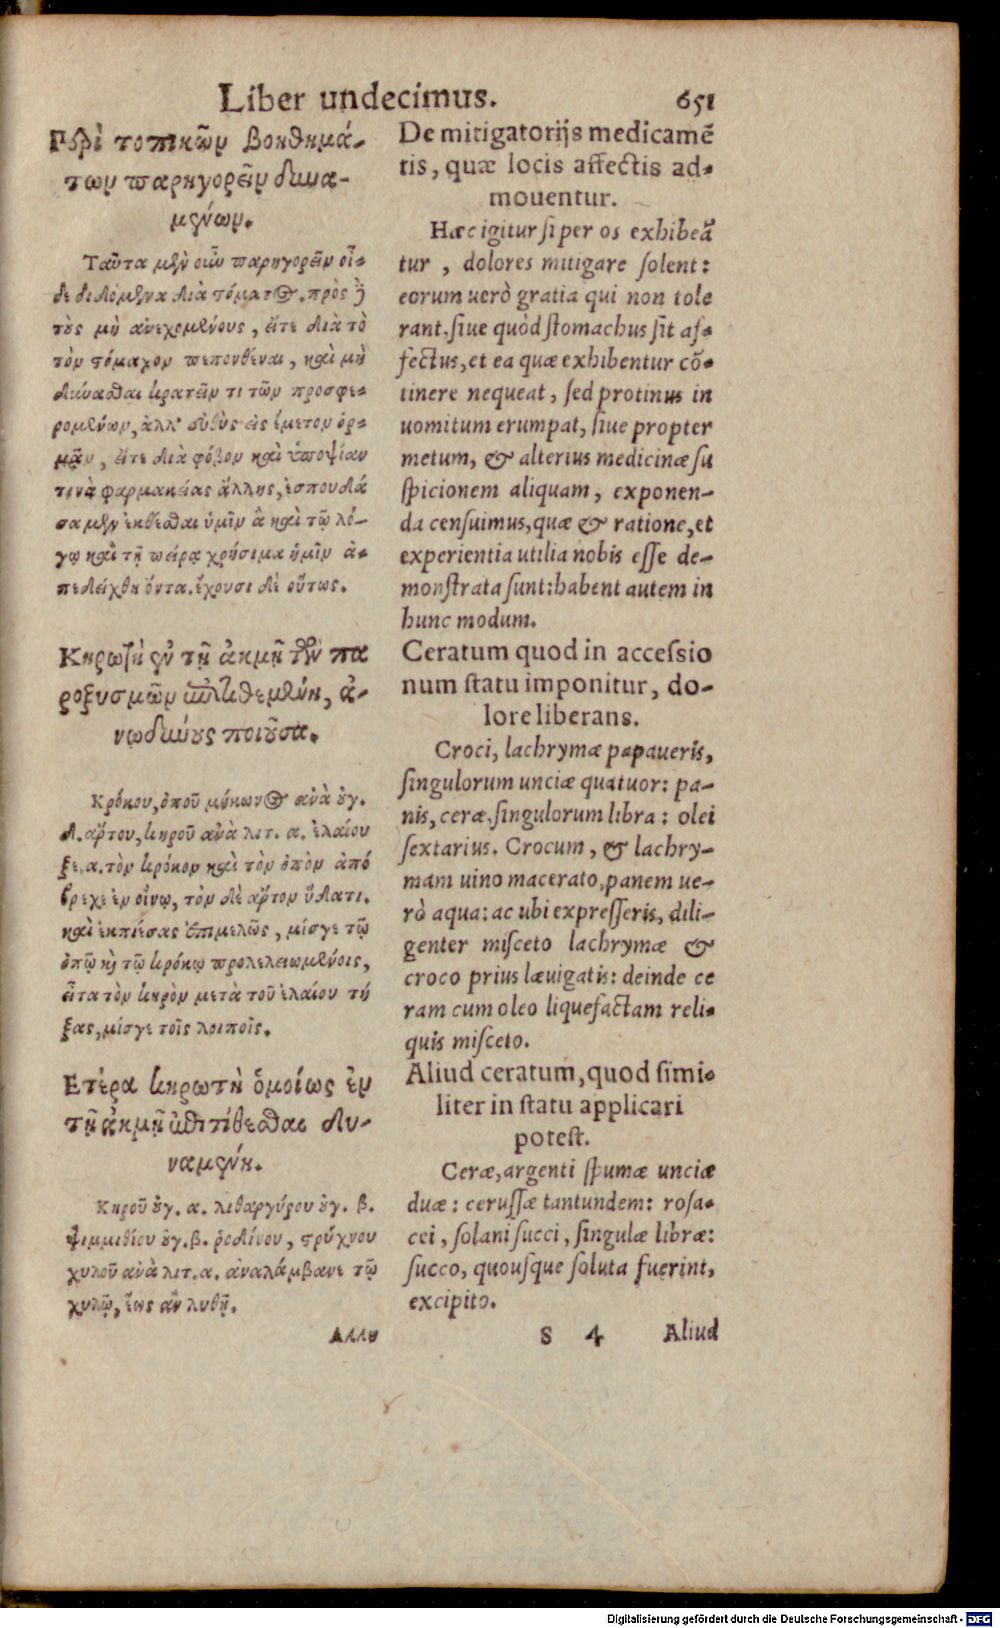 Liber undecimus. 651
Περὶ τοπικῶν βοηθημά-
των παρηγορεῖν δυνα-
μένων.
Ταῦτα μὲν οὖν παρηγορεῖν οἶ-
δε διδόμενα διὰ στόματος. πρὸς δὲ
τοὺς μὴ ἀνεχομένους, εἴτε διὰ τὸ
τὸν στόμαχον πεπονθέναι, καὶ μὴ
δύνασθαι κρατεῖν τι τῶν προσφε-
ρομένων, ἀλλ' εὐθὺς εἰς ἔμετον ὁρ-
μᾷν, εἴτε διὰ φόβον καὶ ὑποψίαν
τινὰ φαρμακείας ἄλλης, ἐσπουδά
σαμεν ἐκθέσθαι ὑμῖν ἃ καὶ τῷ λό-
γῳ καὶ τῇ πείρᾳ χρήσιμα ἡμῖν ἀ-
πεδείχθη ὄντα. ἔχουσι δὲ οὕτως.
Κηρωτὴ ἐν τῇ ἀκμῇ τῶν πα
ροξυσμῶν ἐπιτιθεμένη, ἀ-
νωδύνους ποιοῦσα.
Κρόκου, ὀποῦ μήκωνος ἀνὰ ουγ.
δ. ἄρτου, κηροῦ ἀνὰ λιτ. α. ἐλαίου
ξε. α. τὸν κρόκον καὶ τὸν ὀπὸν ἀπό
βρεχε ἐν οἴνῳ, τὸν δὲ ἄρτον ὕδατι.
καὶ ἐκπιέσας ἐπιμελῶς, μίσγε τῷ
ὀπῷ καὶ τῷ κρόκῳ προλελειωμένοις,
εἶτα τὸν κηρὸν μετὰ τοῦ ἐλαίου τή
ξας, μίσγε τοῖς λοιποῖς.
Ετέρα κηρωτὴ ὁμοίως ἐν
τῇ ἀκμῇ ἐπιτίθεσθαι δυ-
ναμένη.
Κηροῦ ουγ. α. λιθαργύρου ουγ. β.
ψιμμιθίου ουγ. β. ῥοδίνου, στρύχνου
χυλοῦ ἀνὰ λιτ. α. ἀναλάμβανε τῷ
χυλῷ, ἕως ἂν λυθῇ.
Αλλο
De mitigatorijs medicamē
tis, quæ locis affectis ad-
mouentur.
Hæc igitur si per os exhibeā
tur, dolores mitigare solent:
eorum uerò gratia qui non tole
rant, siue quòd stomachus sit af-
fectus, et ea quæ exhibentur cō-
tinere nequeat, sed protinus in
uomitum erumpat, siue propter
metum, & alterius medicinæ su
spicionem aliquam, exponen-
da censuimus, quæ & ratione, et
experientia utilia nobis esse de-
monstrata sunt: habent autem in
hunc modum.
Ceratum quod in accessio
num statu imponitur, do-
lore liberans.
Croci, lachrymæ papaueris,
singulorum unciæ quatuor: pa-
nis, ceræ, singulorum libra: olei
sextarius. Crocum, & lachry-
mam uino macerato, panem ue-
rò aqua: ac ubi expresseris, dili-
genter misceto lachrymæ &
croco prius læuigatis: deinde ce
ram cum oleo liquefactam reli-
quis misceto.
Aliud ceratum, quod simi-
liter in statu applicari
potest.
Ceræ, argenti spumæ unciæ
duæ: cerussæ tantundem: rosa-
cei, solani succi, singulæ libræ:
succo, quousque soluta fuerint,
excipito.
S 4 Aliud
Digitalisierung gefördert durch die Deutsche Forschungsgemeinschaft - DFG